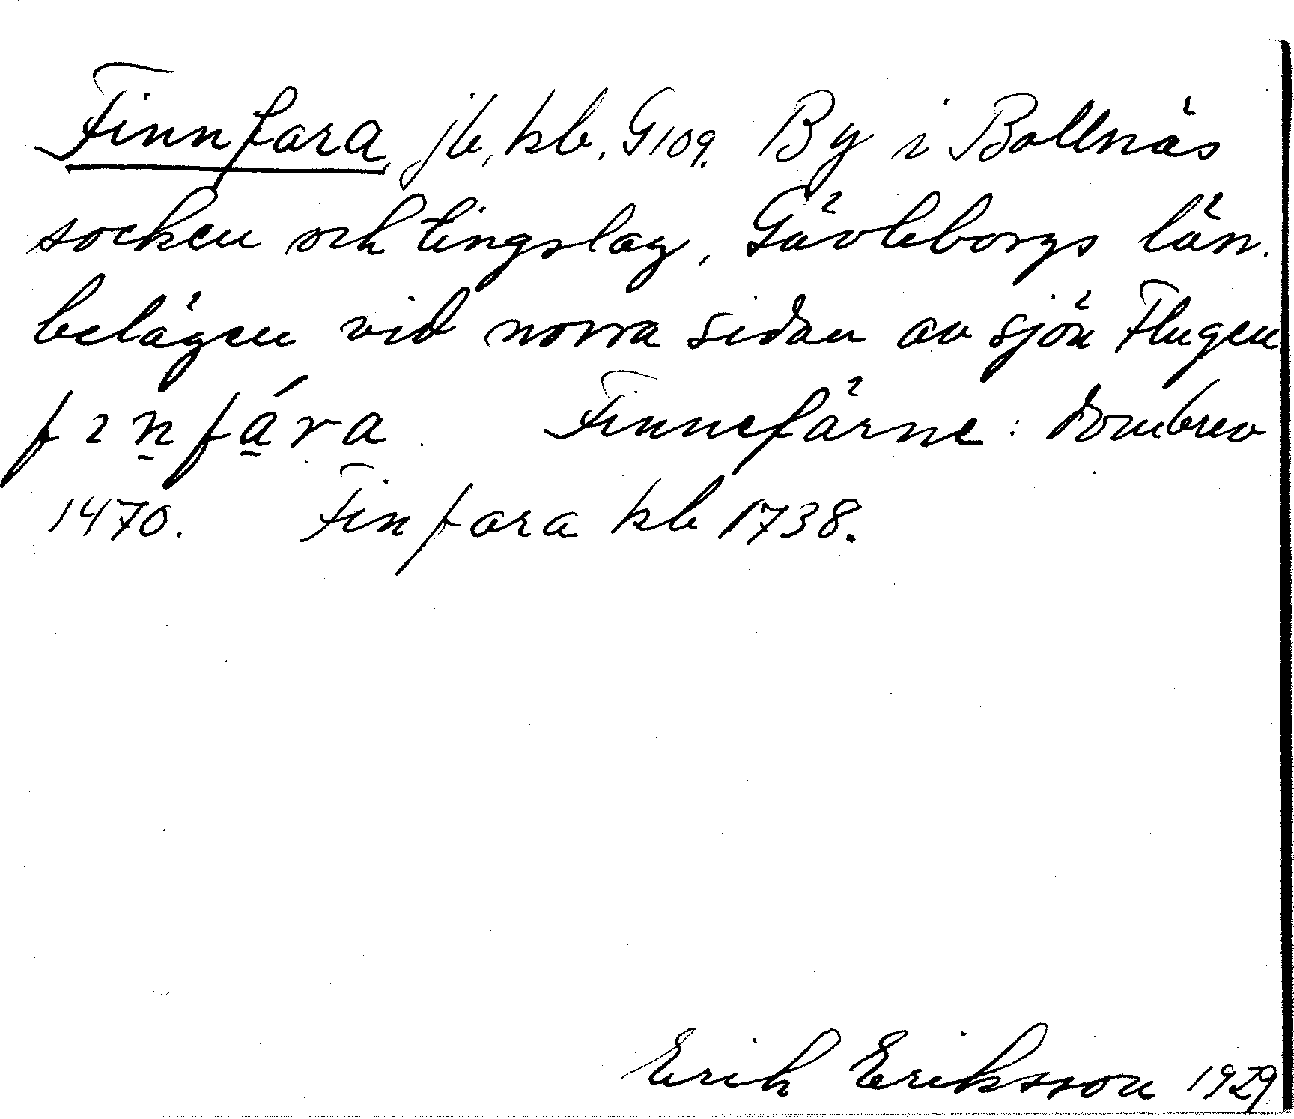 Finnfara jb, kb. G109. By i Bollnäs
socken och tingslag, Gävleborgs län.
belägen vid norra sidan av sjön Flugen
fınfára Finnefärne: dombrev
1470. Finfara kb 1738.
Erik Eriksson 1929